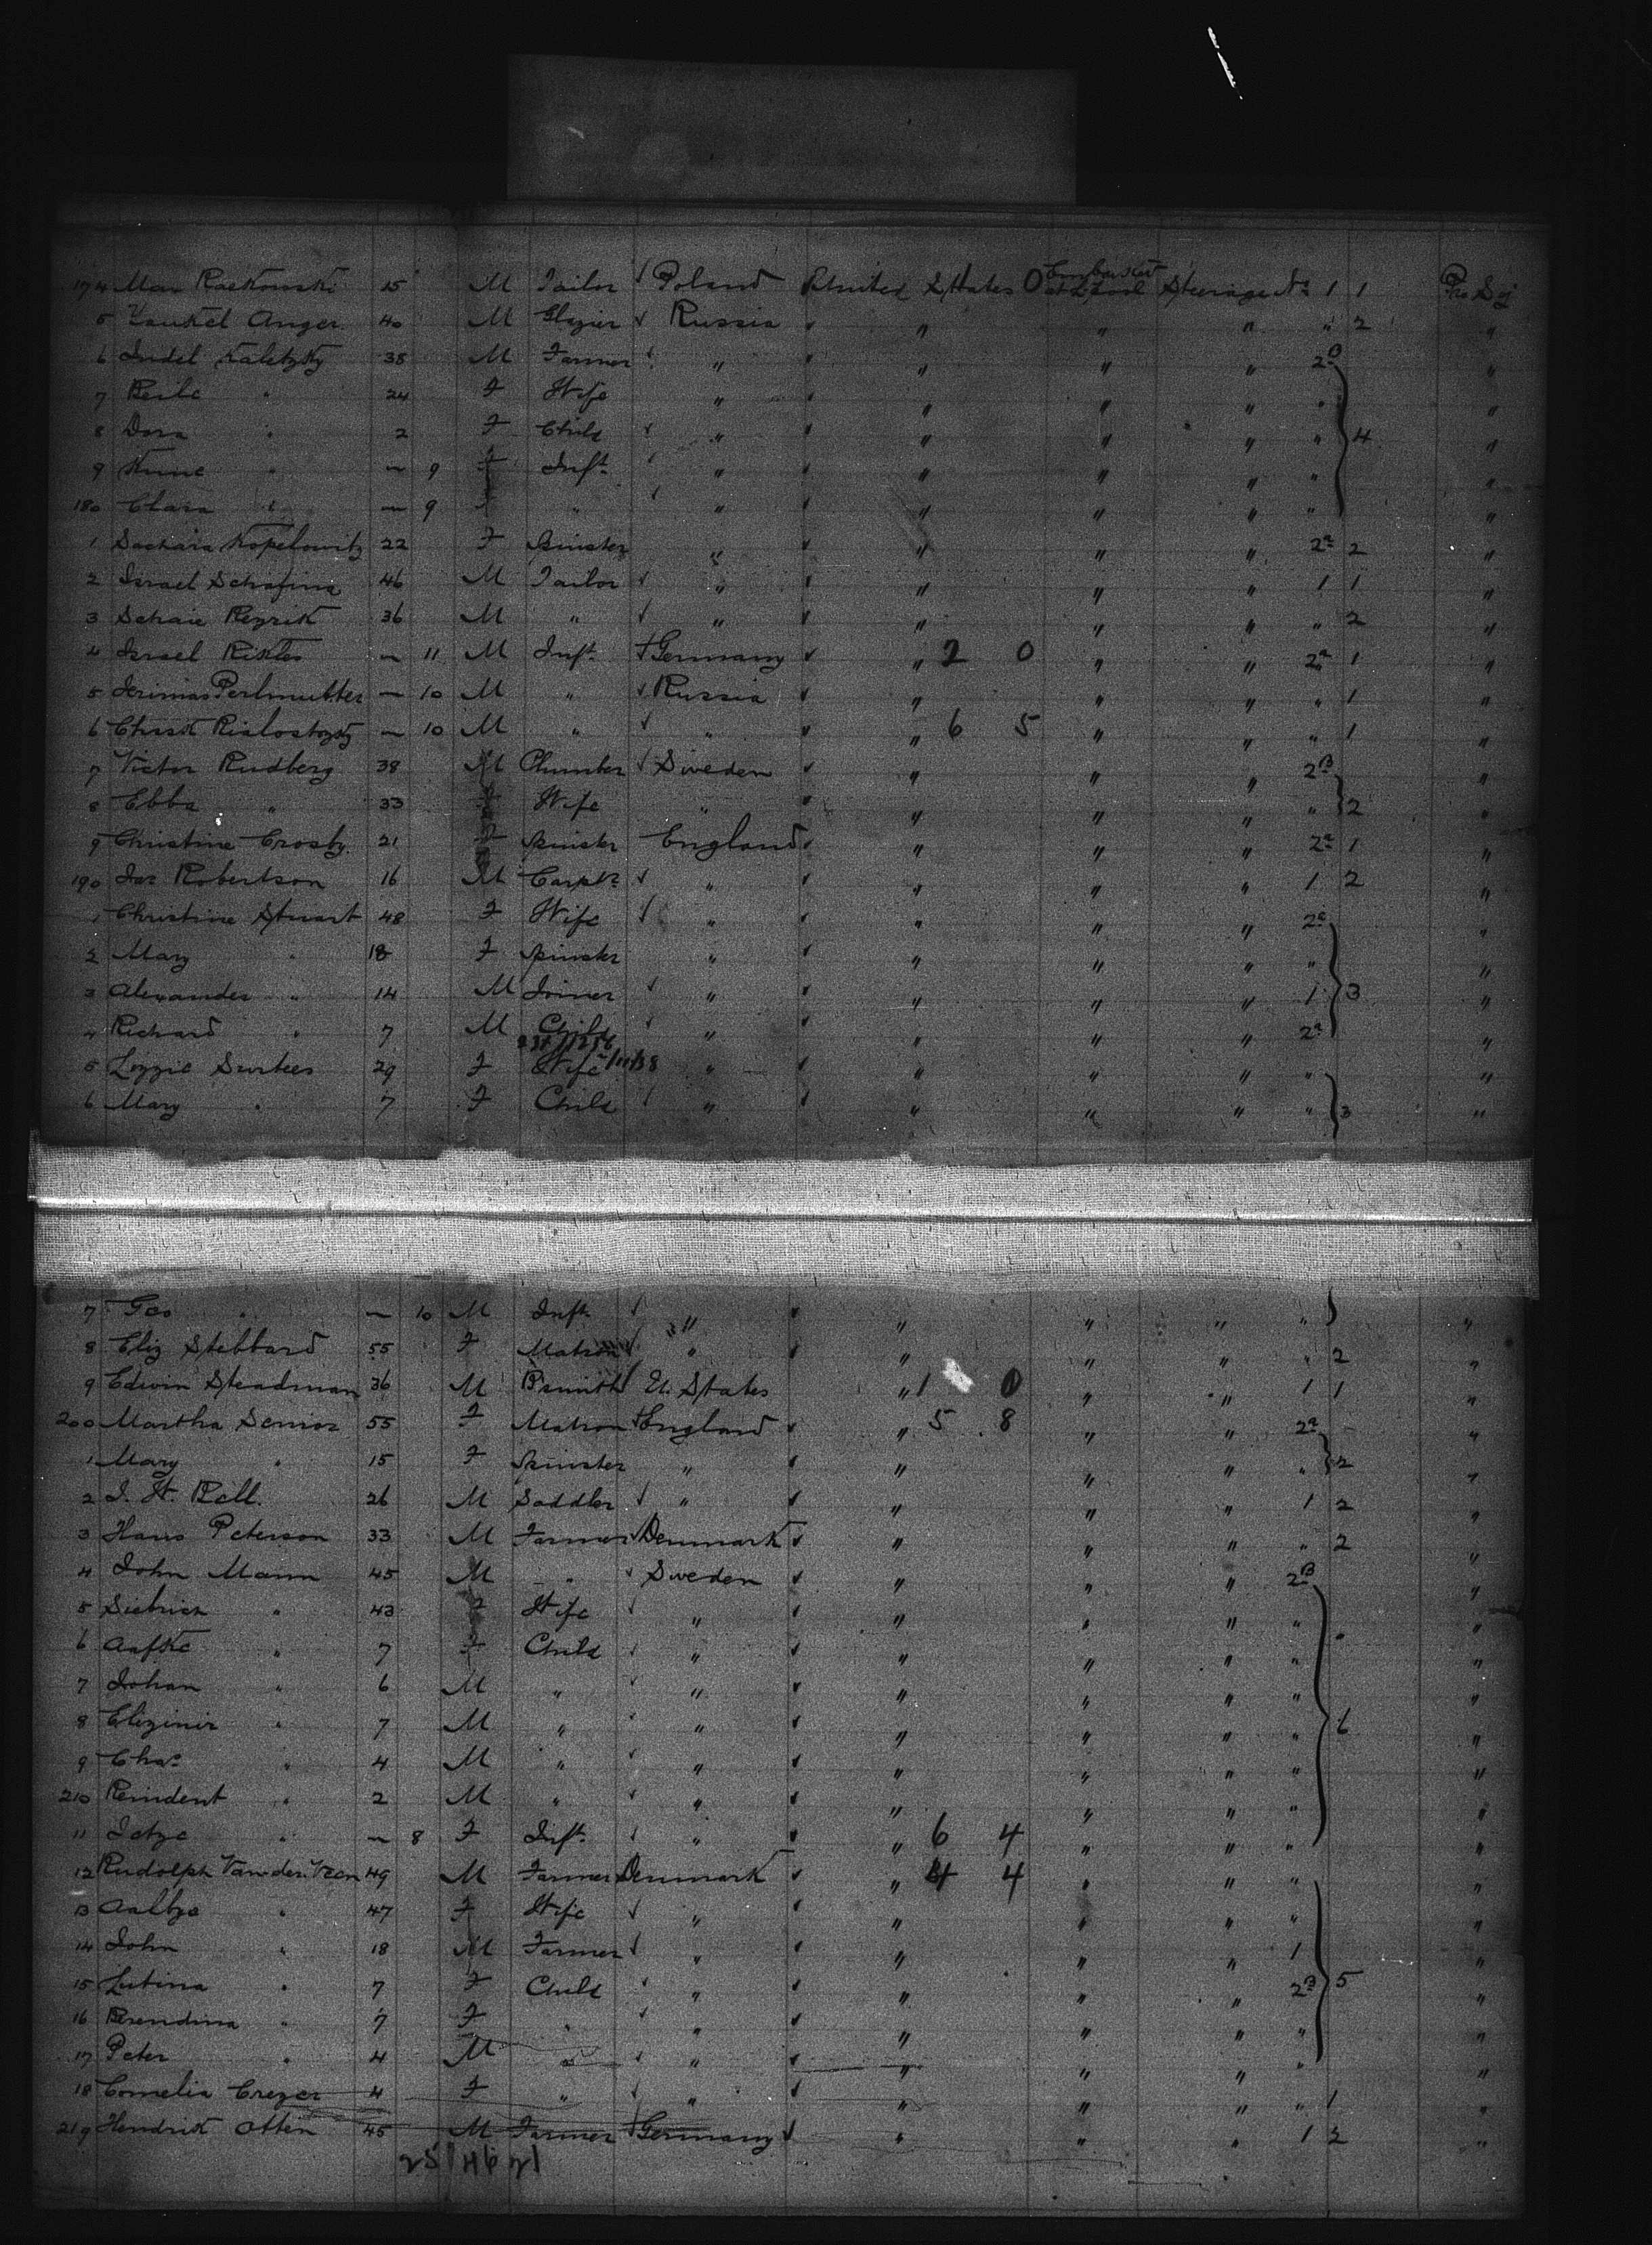 174 Max Rackowski 25 M Tailor ✓ Poland United States 0 Embarked at L'pool Steerage No 1 1 Pro Soj
5 Yankel Anger 40 M Glazier ✓ Russia ✓ " " " " 2 "
6 Judel Kaletzky 35 M Farmer ✓ " ✓ " " " 2B "
7 " 24 F Wife " ✓ " " " " "
8 Dora " 2 F Child ✓ " ✓ " " " " 4 "
9 " — 9 F Inft ✓ " ✓ " " " " "
180 Clara " — 9 " ✓ " ✓ " " " " "
1 Sachara Kopelowitz 22 F Spinster " ✓ " " " 2a 2 "
2 Israel 46 M Tailor ✓ " ✓ " " " 1 1 "
3 Schaie Reznik 36 M " ✓ " ✓ " " " " 2 "
4 Israel — 11 M Inft Germany ✓ " 2 0 " " 2a 1 "
5 Perlmutter — 10 M " ✓ Russia ✓ " " " " 1 "
6 — 10 M " ✓ " ✓ " 6 5 " " " 1 "
7 Victor Rudberg 38 M Plumber ✓ Sweden ✓ " " " 2B "
8 Ebba " 33 F Wife " ✓ " " " " 2 "
9 Christine Crosby 21 F Spinster England ✓ " " " 2a 1 "
190 Jas Robertson 16 M Carptr ✓ " ✓ " " " 1 2 "
1 Christine Stuart 48 F Wife ✓ " ✓ " " " 2a "
2 Mary " 18 F Spinster " ✓ " " " " "
3 Alexander " 14 M Joiner ✓ " ✓ " " " 1 3 "
4 Richard " 7 M Child ✓ " ✓ " " " 2a "
5 Lizzie Surtees 29 F Wife " ✓ " " " " "
6 Mary " 7 F Child ✓ " ✓ " " " " 3 "
7 Geo " — 10 M Inft ✓ " ✓ " " " " "
8 Eliz Stebbard 55 F Matron ✓ " ✓ " " " " 2 "
9 Edwin Steadman 36 M Bsmith U. States " 1 0 " " 1 1 "
200 Martha Senior 55 F Matron England ✓ " 5 8 " " 2a "
1 Mary " 15 F Spinster " ✓ " " " " 2 "
2 J. H. Bell. 26 M Saddler ✓ " ✓ " " " 1 2 "
3 Hans Peterson 33 M Farmer ✓ Denmark ✓ " " " " 2 "
4 John Mann 45 M " ✓ Sweden ✓ " " " 2B "
5 " 43 F Wife ✓ " ✓ " " " " "
6 Aafke " 7 F Child ✓ " ✓ " " " " "
7 Johan " 6 M " ✓ " ✓ " " " " "
8 " 7 M " ✓ " ✓ " " " " 6 "
9 Chas " 4 M " ✓ " ✓ " " " " "
210 " 2 M " ✓ " ✓ " " " " "
11 " — 8 F Inft ✓ " ✓ " 6 4 " " " "
12 Rudolph Van der Veen 49 M Farmer Denmark ✓ " 4 4 " " " "
13 Aaltze " 47 F Wife ✓ " ✓ " " " " "
14 John " 18 M Farmer ✓ " ✓ " " " 1 "
15 Lutina " 7 F Child ✓ " ✓ " " " 2B 5 "
16 Berendina " 7 F " ✓ " ✓ " " " " "
17 Peter " 4 M " ✓ " ✓ " " " " "
18 Cornelia 4 F " ✓ " ✓ " " " " 1 "
219 Hendrik Otten 45 M Farmer Germany ✓ " " " 1 2 "